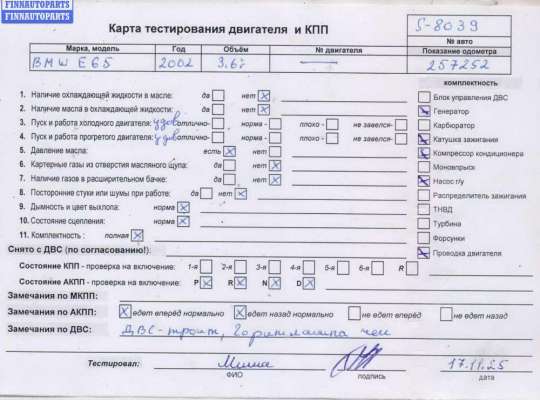 FINNAUTOPARTS
FINNAUTOPARTS
Карта тестирования двигателя и КПП
S-8039
№ авто
Марка, модель Год Объём № двигателя Показание одометра
BMW E65 2002 3.6i — 257252
комплектность
1. Наличие охлаждающей жидкости в масле: да нет
2. Наличие масла в охлаждающей жидкости: да нет
3. Пуск и работа холодного двигателя: удов отлично- норма - плохо - не завелся-
4. Пуск и работа прогретого двигателя: удов отлично- норма - плохо - не завелся-
5. Давление масла: есть нет
6. Картерные газы из отверстия масляного щупа: да нет
7. Наличие газов в расширительном бачке: да нет
8. Посторонние стуки или шумы при работе: да нет
9. Дымность и цвет выхлопа: норма
10. Состояние сцепления: норма
11. Комплектность : полная
Блок управления ДВС
Генератор
Карбюратор
Катушка зажигания
Компрессор кондиционера
Моновпрыск
Насос г/у
Распределитель зажигания
ТНВД
Турбина
Форсунки
Проводка двигателя
Снято с ДВС (по согласованию!):
Состояние КПП - проверка на включение: 1-я 2-я 3-я 4-я 5-я 6-я R
Состояние АКПП - проверка на включение: P R N D
Замечания по МКПП:
Замечания по АКПП: едет вперёд нормально едет назад нормально не едет вперёд не едет назад
Замечания по ДВС: ДВС-троит, Горит лампа чек
Тестировал: Миша 17.11.25
ФИО подпись дата